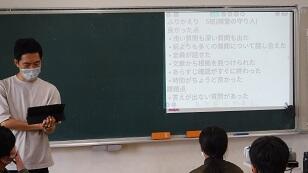 ふりかえり　5班(殿堂の守り人)
良かった点
・浅い質問も深い質問も出た
・前よりも多くの質問について話し合えた
・全員が話せた
・文章から根拠を見つけられた
・あらすじ確認がすぐに終わった
・時間がちょうど良かった
課題点
・答えが出ない質問があった